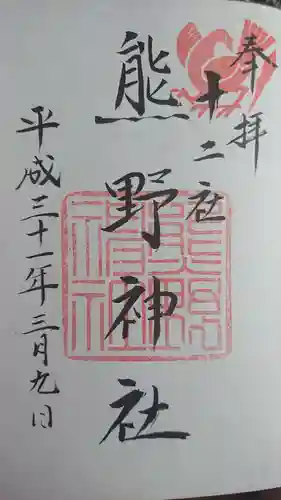 奉拝
十二社
熊野神社
平成三十一年三月九日